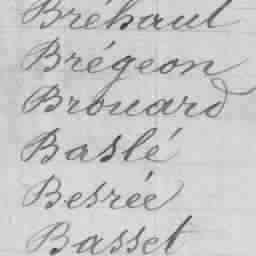 Bréhaut
Brégeon
Brouard
Baslé
Besrée
Basset